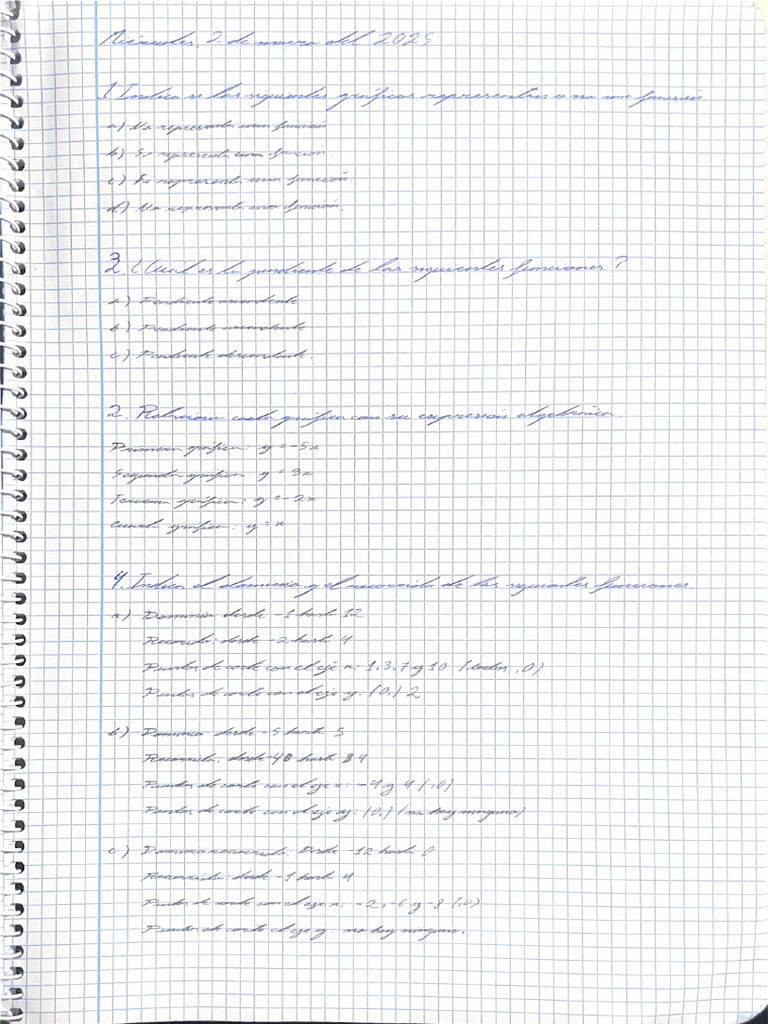 Miércoles, 2 de enero del 2025
1. Indica si las siguientes gráficas representan o no una función.
a) No representa una función
b) Sí representa una función.
c) Sí representa una función.
d) No representa una función.
3. ¿Cuál es la pendiente de las siguientes funciones?
a) Pendiente ascendente
b) Pendiente ascendente
c) Pendiente descendente.
2. Relaciona cada gráfica con su expresión algebraica
Primera gráfica: y = -5x
Segunda gráfica: y = 3x
Tercera gráfica: y = -2x
Cuarta gráfica: y = x
4. Indica el dominio y el recorrido de las siguientes funciones.
a) Dominio desde -1 hasta 12
Recorrido: desde -2 hasta 4
Puntos de corte con el eje x: 1, 3, 7 y 10 (todos ,0)
Puntos de corte con el eje y: (0,) 2
b) Dominio desde -5 hasta 5
Recorrido: desde -4 hasta 4
Puntos de corte con el eje x: -4 y 4 (,0)
Puntos de corte con el eje y: (0,) (no hay ninguno)
c) Dominio Desde -12 hasta 0
Recorrido: desde -1 hasta 4
Puntos de corte con el eje x: -2, -6 y -8 (,0)
Puntos de corte el eje y: no hay ninguno.